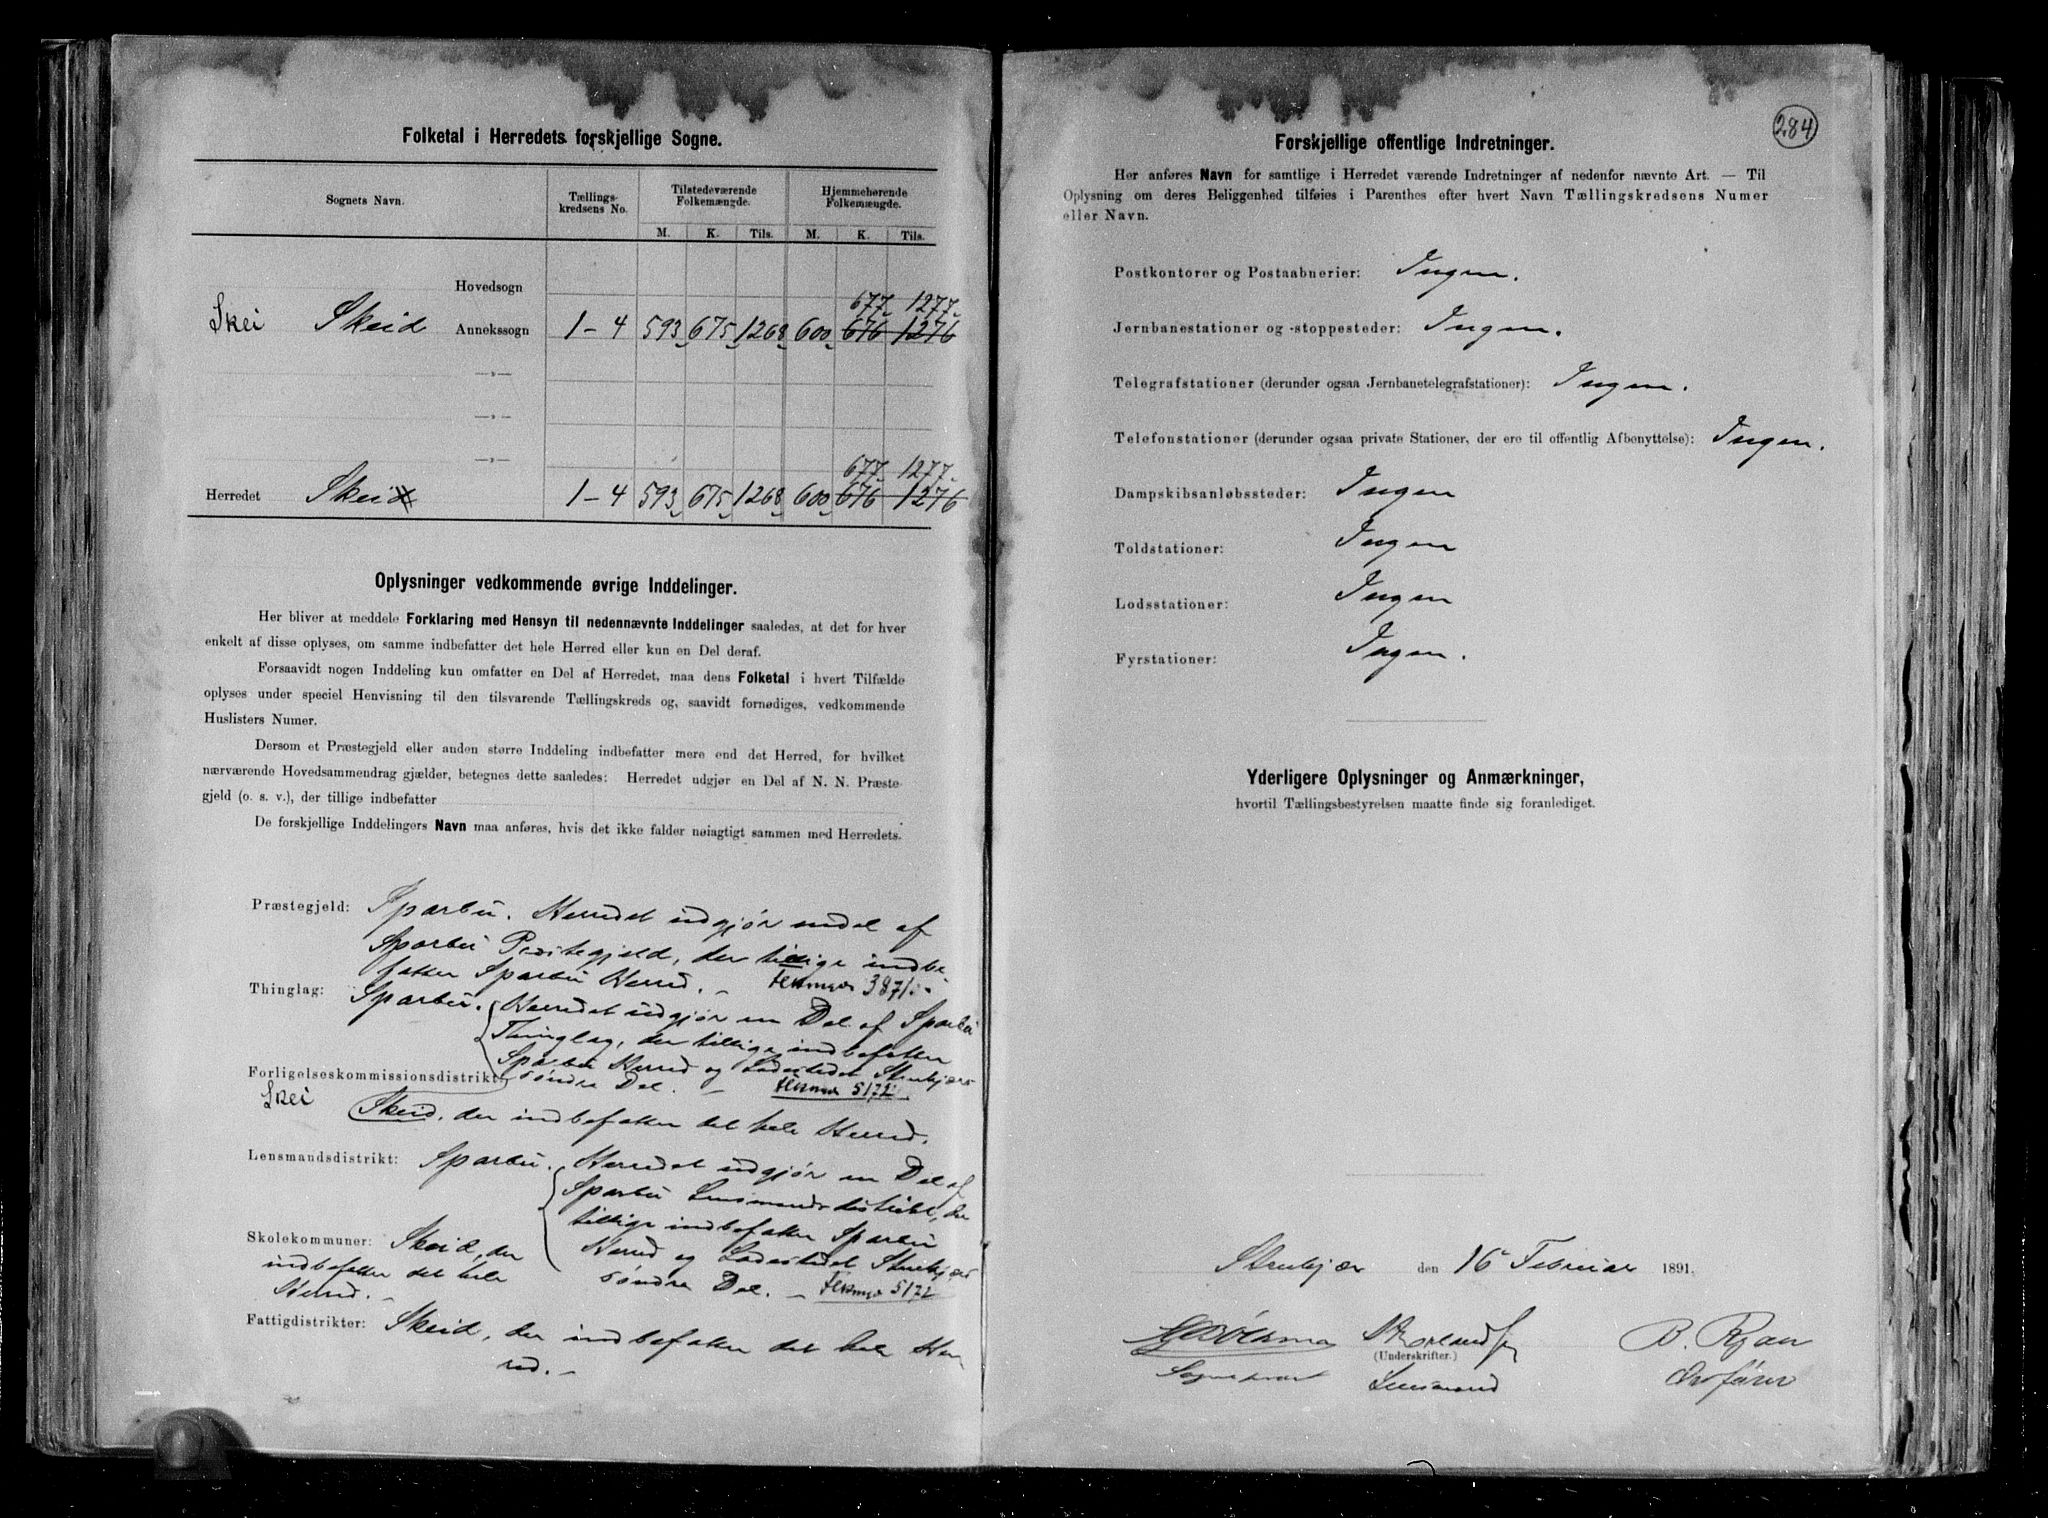 Folketal i Herredets forskjellige Sogne.
Sognets Navn. Tællings-kredsens No. Tilstedeværende Folkemængde. Hjemmehørende Folkemængde.
M. K. Tils. M. K. Tils.
Hovedsogn
677 1277
Skei Skeid Annekssogn 1-4 593 675 1268 600 676 1276
—»—
—»—
—»—
677 1277
Herredet Skeid 1-4 593 675 1268 600 676 1276
Oplysninger vedkommende øvrige Inddelinger.
Her bliver at meddele Forklaring med Hensyn til nedennævnte Inddelinger saaledes, at det for hver
enkelt af disse oplyses, om samme indbefatter det hele Herred eller kun en Del deraf.
Forsaavidt nogen Inddeling kun omfatter en Del af Herredet, maa dens Folketal i hvert Tilfælde
oplyses under speciel Henvisning til den tilsvarende Tællingskreds og, saavidt fornødiges, vedkommende
Huslisters Numer.
Dersom et Præstegjeld eller anden større Inddeling indbefatter mere end det Herred, for hvilket
nærværende Hovedsammendrag gjælder, betegnes dette saaledes: Herredet udgjør en Del af N. N. Præste-
gjeld (o. s. v.), der tillige indbefatter
De forskjellige Inddelingers Navn maa anføres, hvis det ikke falder nøiagtigt sammen med Herredets.
Præstegjeld: Sparbu. Herredet udgjør endel af
Sparbu Præstegjeld, der tillige indbe-
fatter Sparbu Herred. — 3871
Thinglag: Sparbu. Herredet udgjør en Del af Sparbu
Thinglag, der tillige indbefatter
Sparbu Herred og Ladestedet Stenkjærs
Forligelseskommissionsdistrikt: søndre Del. — 5172
Skei Skeid, der indbefatter det hele Herred.
Lensmandsdistrikt: Sparbu. Herredet udgjør en Del af
Sparbu Lensmandsdistrikt, der
tillige indbefatter Sparbu
Herred og Ladestedet Stenkjærs
søndre Del. — 5172
Skolekommuner: Skeid, der
indbefatter det hele
Herred. —
Fattigdistrikter: Skeid, der indbefatter det hele Her-
red. —
284
Forskjellige offentlige Indretninger.
Her anføres Navn for samtlige i Herredet værende Indretninger af nedenfor nævnte Art. — Til
Oplysning om deres Beliggenhed tilføies i Parenthes efter hvert Navn Tællingskredsens Numer
eller Navn.
Postkontorer og Postaabnerier: Ingen.
Jernbanestationer og -stoppesteder: Ingen.
Telegrafstationer (derunder ogsaa Jernbanetelegrafstationer): Ingen.
Telefonstationer (derunder ogsaa private Stationer, der ere til offentlig Afbenyttelse): Ingen.
Dampskibsanløbssteder: Ingen
Toldstationer: Ingen
Lodsstationer: Ingen
Fyrstationer: Ingen.
Yderligere Oplysninger og Anmærkninger,
hvortil Tællingsbestyrelsen maatte finde sig foranlediget.
Stenkjær den 16 Februar 1891.
B. Ryan
(Underskrifter.)
Sogneprest Lensmand Ordfører